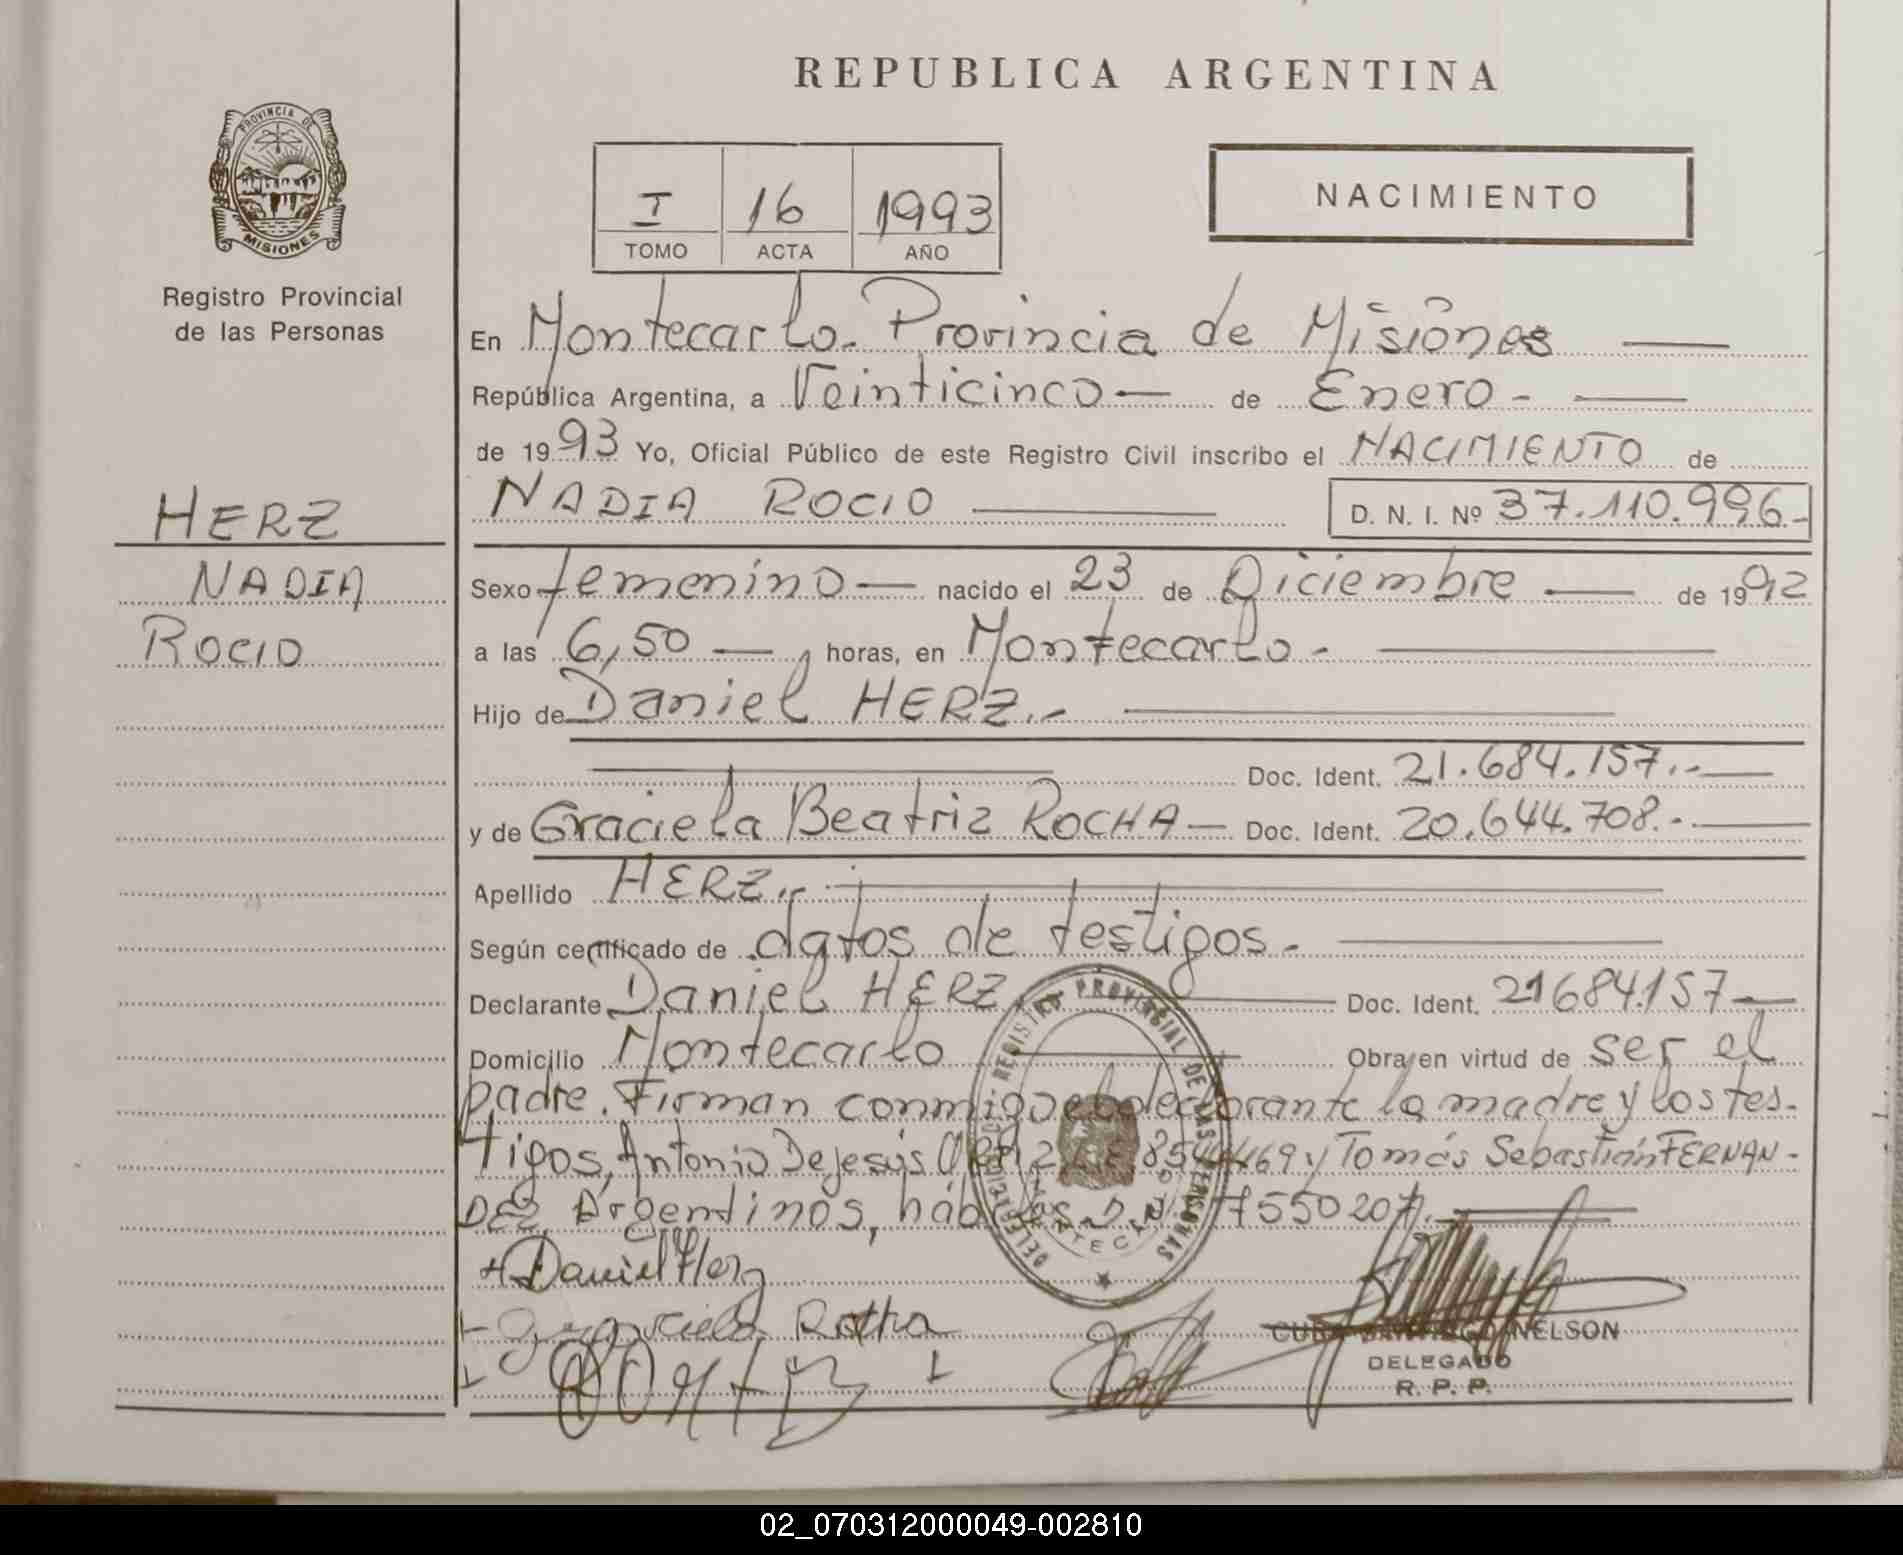 REPUBLICA ARGENTINA
PROVINCIA DE
MISIONES
Registro Provincial
de las Personas
I 16 1993
TOMO ACTA AÑO
NACIMIENTO
En Montecarlo. Provincia de Misiones
República Argentina, a Veinticinco — de Enero -
de 1993 Yo, Oficial Público de este Registro Civil inscribo el NACIMIENTO de
NADIA ROCIO D. N. I. Nº 37.110.996.-
HERZ
NADIA
ROCIO
Sexo femenino — nacido el 23 de Diciembre — de 1992
a las 6,50 — horas, en Montecarlo. -
Hijo de Daniel HERZ.-
Doc. Ident. 21.684.157.-
y de Graciela Beatriz ROCHA — Doc. Ident. 20.644.708.-
Apellido HERZ.-
Según certificado de datos de testigos.-
Declarante Daniel HERZ Doc. Ident. 21684.157 —
Domicilio Montecarlo Obra en virtud de ser el
padre. Firman conmigo el declarante la madre y los tes-
tigos, Antonio Dejesús y Tomás Sebastián FERNAN-
DEZ, Argentinos, hábiles 7550207.
REGISTRO PROVINCIAL DE LAS PERSONAS
Daniel Herz
Graciela Rocha
NELSON
DELEGADO
R. P. P.
02_070312000049-002810